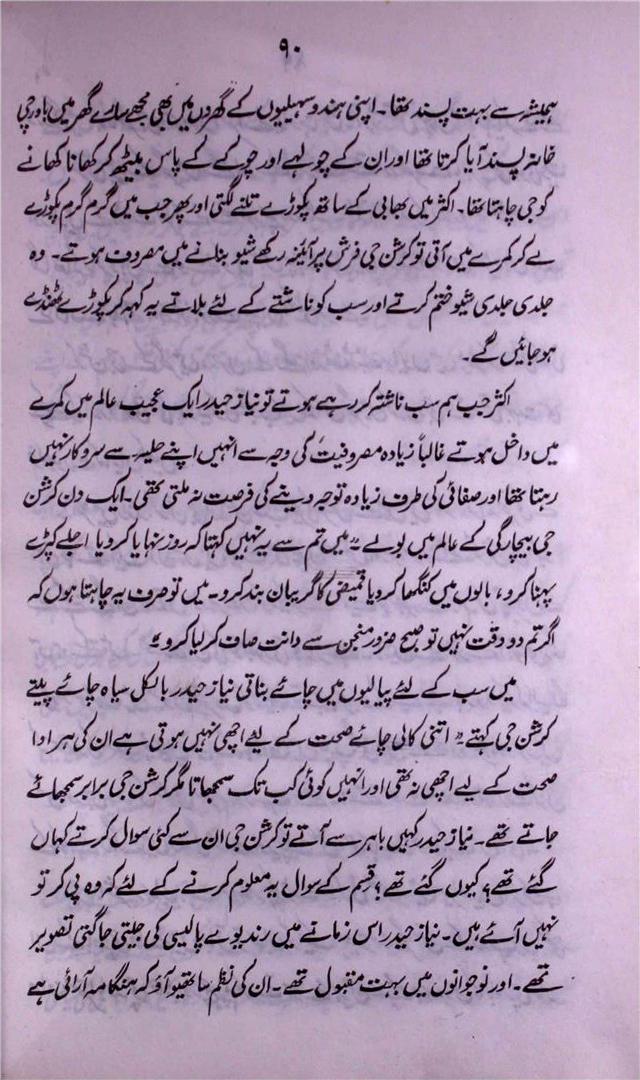 ۹۰
ہمیشہ سے بہت پسند تھا۔ اپنی ہندو سہیلیوں کے گھروں میں بھی مجھے سارے گھر میں باورچی
خانہ پسند آیا کرتا تھا اور ان کے چولہے اور چوکے کے پاس بیٹھ کر کھانا کھانے
کو جی چاہتا تھا۔ اکثر میں بھابی کے ساتھ پکوڑے تلنے لگتی اور پھر جب میں گرم گرم پکوڑے
لے کر کمرے میں آتی تو کرشن جی فرش پر آئینہ رکھے شیو بنانے میں مصروف ہوتے۔ وہ
جلدی جلدی شیو ختم کرتے اور سب کو ناشتے کے لئے بلاتے یہ کہہ کر پکوڑے ٹھنڈے
ہو جائیں گے۔
اکثر جب ہم سب ناشتہ کر رہے ہوتے تو نیاز حیدر ایک عجیب عالم میں کمرے
میں داخل ہوتے غالباً زیادہ مصروفیت کی وجہ سے انہیں اپنے حلیہ سے سروکار نہیں
رہتا تھا اور صفائی کی طرف زیادہ توجہ دینے کی فرصت نہ ملتی تھی۔ ایک دن کرشن
جی بیچارگی کے عالم میں بولے "میں تم سے یہ نہیں کہتا کہ روز نہایا کرو یا اجلے کپڑے
پہنا کرو، بالوں میں کنگھا کرو یا قمیض کا گریبان بند کرو۔ میں تو صرف یہ چاہتا ہوں کہ
اگر تم دو وقت نہیں تو صبح ضرور منجن سے دانت صاف کر لیا کرو"
میں سب کے لئے پیالیوں میں چائے بناتی نیاز حیدر بالکل سیاہ چائے پیتے
کرشن جی کہتے "اتنی کالی چائے صحت کے لیے اچھی نہیں ہوتی ہے ان کی ہر ادا
صحت کے لیے اچھی نہ تھی اور انہیں کوئی کب تک سمجھاتا مگر کرشن جی برابر سمجھائے
جاتے تھے۔ نیاز حیدر کہیں باہر سے آتے تو کرشن جی ان سے کئی سوال کرتے کہاں
گئے تھے؟ کیوں گئے تھے؟ قسم کے سوال یہ معلوم کرنے کے لئے کہ وہ پی کر تو
نہیں آئے ہیں۔ نیاز حیدر اس زمانے میں رندیوے پالیسی کی جیتی جاگتی تصویر
تھے۔ اور نوجوانوں میں بہت مقبول تھے۔ ان کی نظم ساتھیو آؤ کہ ہنگامہ آرائی ہے